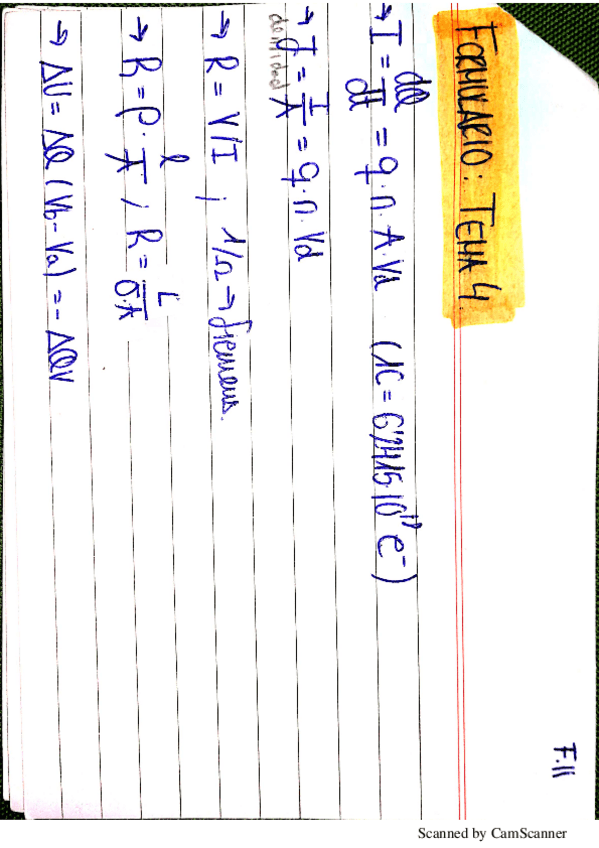 FORMULARIO: TEMA 4.
→ I = dQ/dt = q·n·A·Vd (1C = 6'2415·10¹⁸ e⁻)
→ J = I/A = q·n·Vd
densidad
→ R = V/I ; 1/Ω → siemens.
→ R = ρ·l/A ; R = L/σ·A
→ ΔU = ΔQ (Vb - Va) = - ΔQV
F.11
Scanned by CamScanner